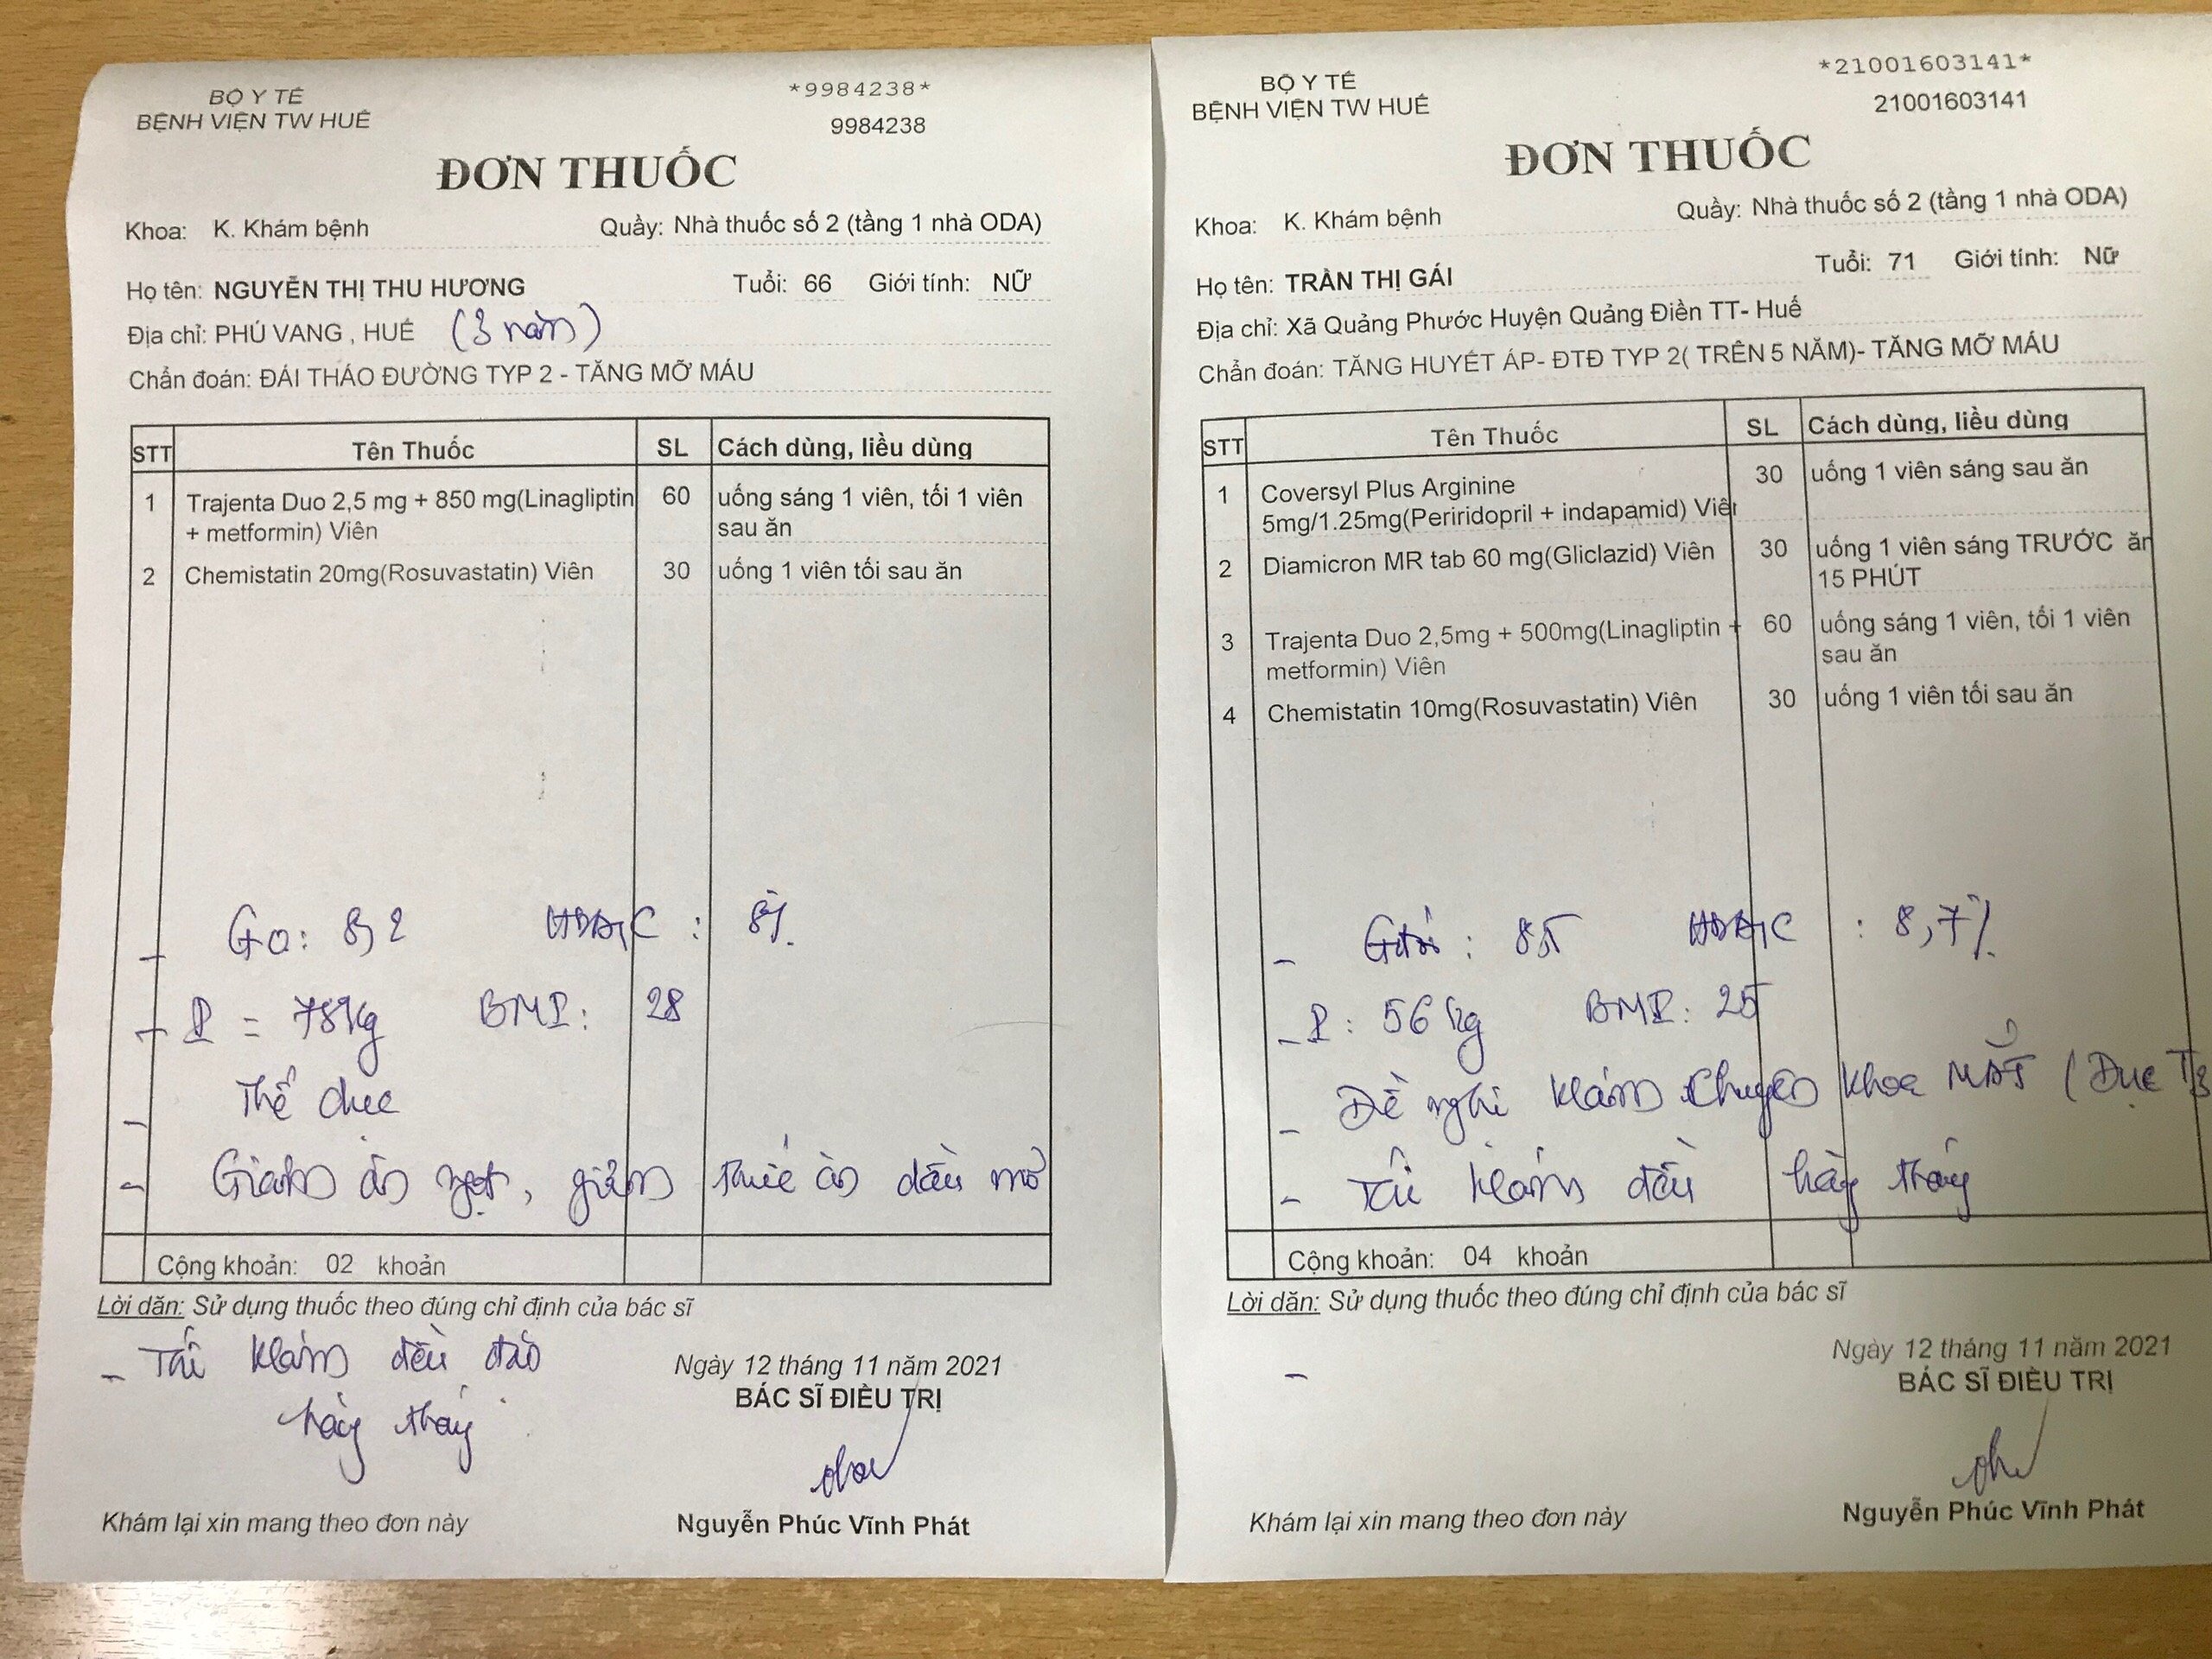 BỘ Y TẾ
BỆNH VIỆN TW HUẾ
*9984238*
9984238
ĐƠN THUỐC
Khoa: K. Khám bệnh Quầy: Nhà thuốc số 2 (tầng 1 nhà ODA)
Họ tên: NGUYỄN THỊ THU HƯƠNG Tuổi: 66 Giới tính: NỮ
Địa chỉ: PHÚ VANG , HUẾ (3 năm)
Chẩn đoán: ĐÁI THÁO ĐƯỜNG TYP 2 - TĂNG MỠ MÁU
STT Tên Thuốc SL Cách dùng, liều dùng
1 Trajenta Duo 2,5 mg + 850 mg(Linagliptin 60 uống sáng 1 viên, tối 1 viên
+ metformin) Viên sau ăn
2 Chemistatin 20mg(Rosuvastatin) Viên 30 uống 1 viên tối sau ăn
- Go: 8,2 HbA1C : 8%
- P = 78kg BMI: 28
- Thể dục
- Giảm ăn ngọt, giảm thức ăn dầu mỡ
Cộng khoản: 02 khoản
Lời dặn: Sử dụng thuốc theo đúng chỉ định của bác sĩ
- Tái khám đều đặn
hàng tháng
Ngày 12 tháng 11 năm 2021
BÁC SĨ ĐIỀU TRỊ
Nguyễn Phúc Vĩnh Phát
Khám lại xin mang theo đơn này
BỘ Y TẾ
BỆNH VIỆN TW HUẾ
*21001603141*
21001603141
ĐƠN THUỐC
Khoa: K. Khám bệnh Quầy: Nhà thuốc số 2 (tầng 1 nhà ODA)
Họ tên: TRẦN THỊ GÁI Tuổi: 71 Giới tính: Nữ
Địa chỉ: Xã Quảng Phước Huyện Quảng Điền TT- Huế
Chẩn đoán: TĂNG HUYẾT ÁP- ĐTĐ TYP 2( TRÊN 5 NĂM)- TĂNG MỠ MÁU
STT Tên Thuốc SL Cách dùng, liều dùng
1 Coversyl Plus Arginine 30 uống 1 viên sáng sau ăn
5mg/1.25mg(Periridopril + indapamid) Viên
2 Diamicron MR tab 60 mg(Gliclazid) Viên 30 uống 1 viên sáng TRƯỚC ăn
15 PHÚT
3 Trajenta Duo 2,5mg + 500mg(Linagliptin + 60 uống sáng 1 viên, tối 1 viên
metformin) Viên sau ăn
4 Chemistatin 10mg(Rosuvastatin) Viên 30 uống 1 viên tối sau ăn
- : HbA1C : 8,7%
- P: 56kg BMI: 25
- Đề nghị khám chuyên khoa MẮT (Đục
- Tái khám đều hàng tháng
Cộng khoản: 04 khoản
Lời dặn: Sử dụng thuốc theo đúng chỉ định của bác sĩ
-
Ngày 12 tháng 11 năm 2021
BÁC SĨ ĐIỀU TRỊ
Nguyễn Phúc Vĩnh Phát
Khám lại xin mang theo đơn này